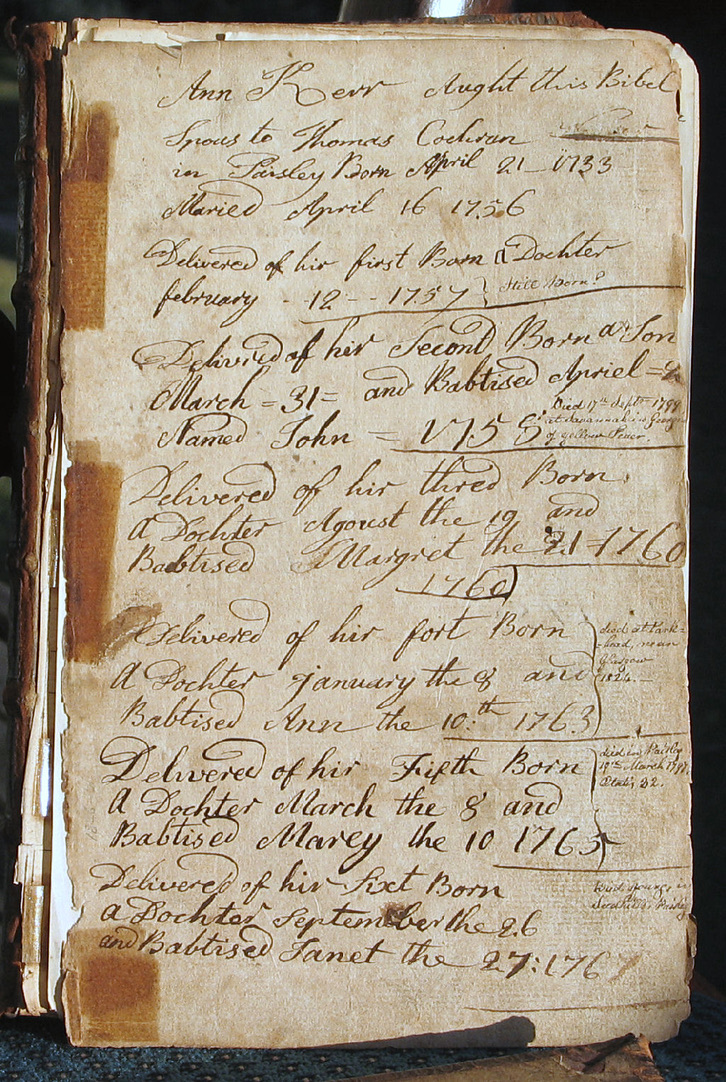 Ann Kerr Aught this Bibel
Spous to Thomas Cochran
in Paisley Born April 21 1733
Maried April 16 1756
Delivered of hir first Born a Dochter
february 12 1757 } Still born?
Delivered of hir Second Born a Son
March = 31 = and Babtised Apriel =
Named John = 1758
Died 17th Septr 1799
at Savannah in Georgia
of yellow Fever.
Delivered of hir thred Born
A Dochter Agoust the 19 and
Babtised Margret the 21 = 1760
1760
Delivered of hir fort Born
A Dochter January the 8 and
Babtised Ann the 10:th 1763
died at Park=
=head, near
Glasgow
1824.
Delivered of hir Fifth Born
A Dochter March the 8 and
Babtised Marey the 10 1765
died in Paisley
March 1797
Etat; 32.
Delivered of hir Sixt Born
a Dochter September the 26
and Babtised Janet the 27: 176
Died young in
Paisley